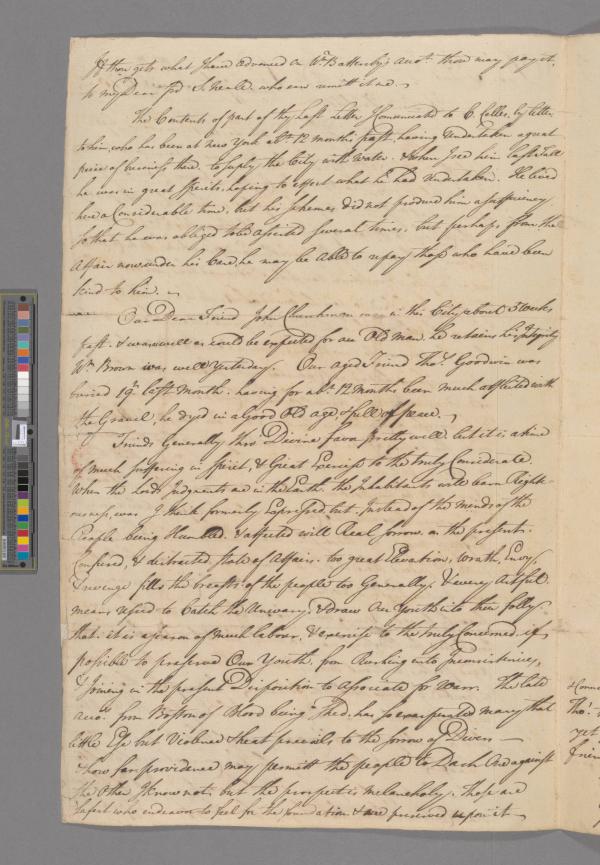 If thou gets what I have advanced on Wm Battersby's Accot. thou may pay it
to my Dear frd S. Neale. who can remitt it me.
The Contents of part of thy Last Letter I Comunicated to C. Colles, by letter
to him, who has been at New York abt. 12 months past, having Undertaken a great
piece of business there. to Suply the City with Water. & when I see him last Fall
he was in great Spirits, hoping to effect what he had Undertaken. He lived
here a Considerable time, but his Schemes did not produce him a sufficiency
So that he was obliged to be assisted several times. but perhaps from the
Affair now under his Care, he may be Able to repay those who have been
kind to him.
Our Dear Friend John Churchman was in this City about 3 weeks
past. & was as well as could be expected for an Old man, he retains his Integrity
Wm. Brown was well Yesterday. Our aged Friend Thos. Goodwin was
buried 19th last Month. having for abt. 12 months been much afflicted with
the Gravel, he dyed in a Good Old age & full of peace.
Friends Generally thro Divine favor pretty well. but it is a time
of much suffering in Spirit, & Great Exercise to the truly Considerate
When the Lords Judgments are in the Earth, the Inhabitants will learn Right-
eousness, was I think formerly Expressed but, Instead of the minds of the
People being Humbled, & affected with Real Sorrow, on the present
Confused, & distracted State of Affairs. too great Elevation, wrath, Envy,
& revenge fills the breasts of the people too Generally, & every Artful
means used to Catch the Unwary, & draw Our Youth into their folly
that it is a season of much labour, & exercise to the truly Concerned if
possible to preserve Our Youth, from Rushing into
& Joining in the present Disposition to Associate for Warr. The late
Acco. from Boston of Blood being Shed, has so exasperated many that
little Else but Violence & heat prevails to the sorrow of Divers
& how far providence may permitt the people to Dash One against
the Other I know not, but the prospect is melancholy. Those are
Safest who endeavor to feel for the foundation & are preserved upon it
& Conn
Tho!
yet
frien